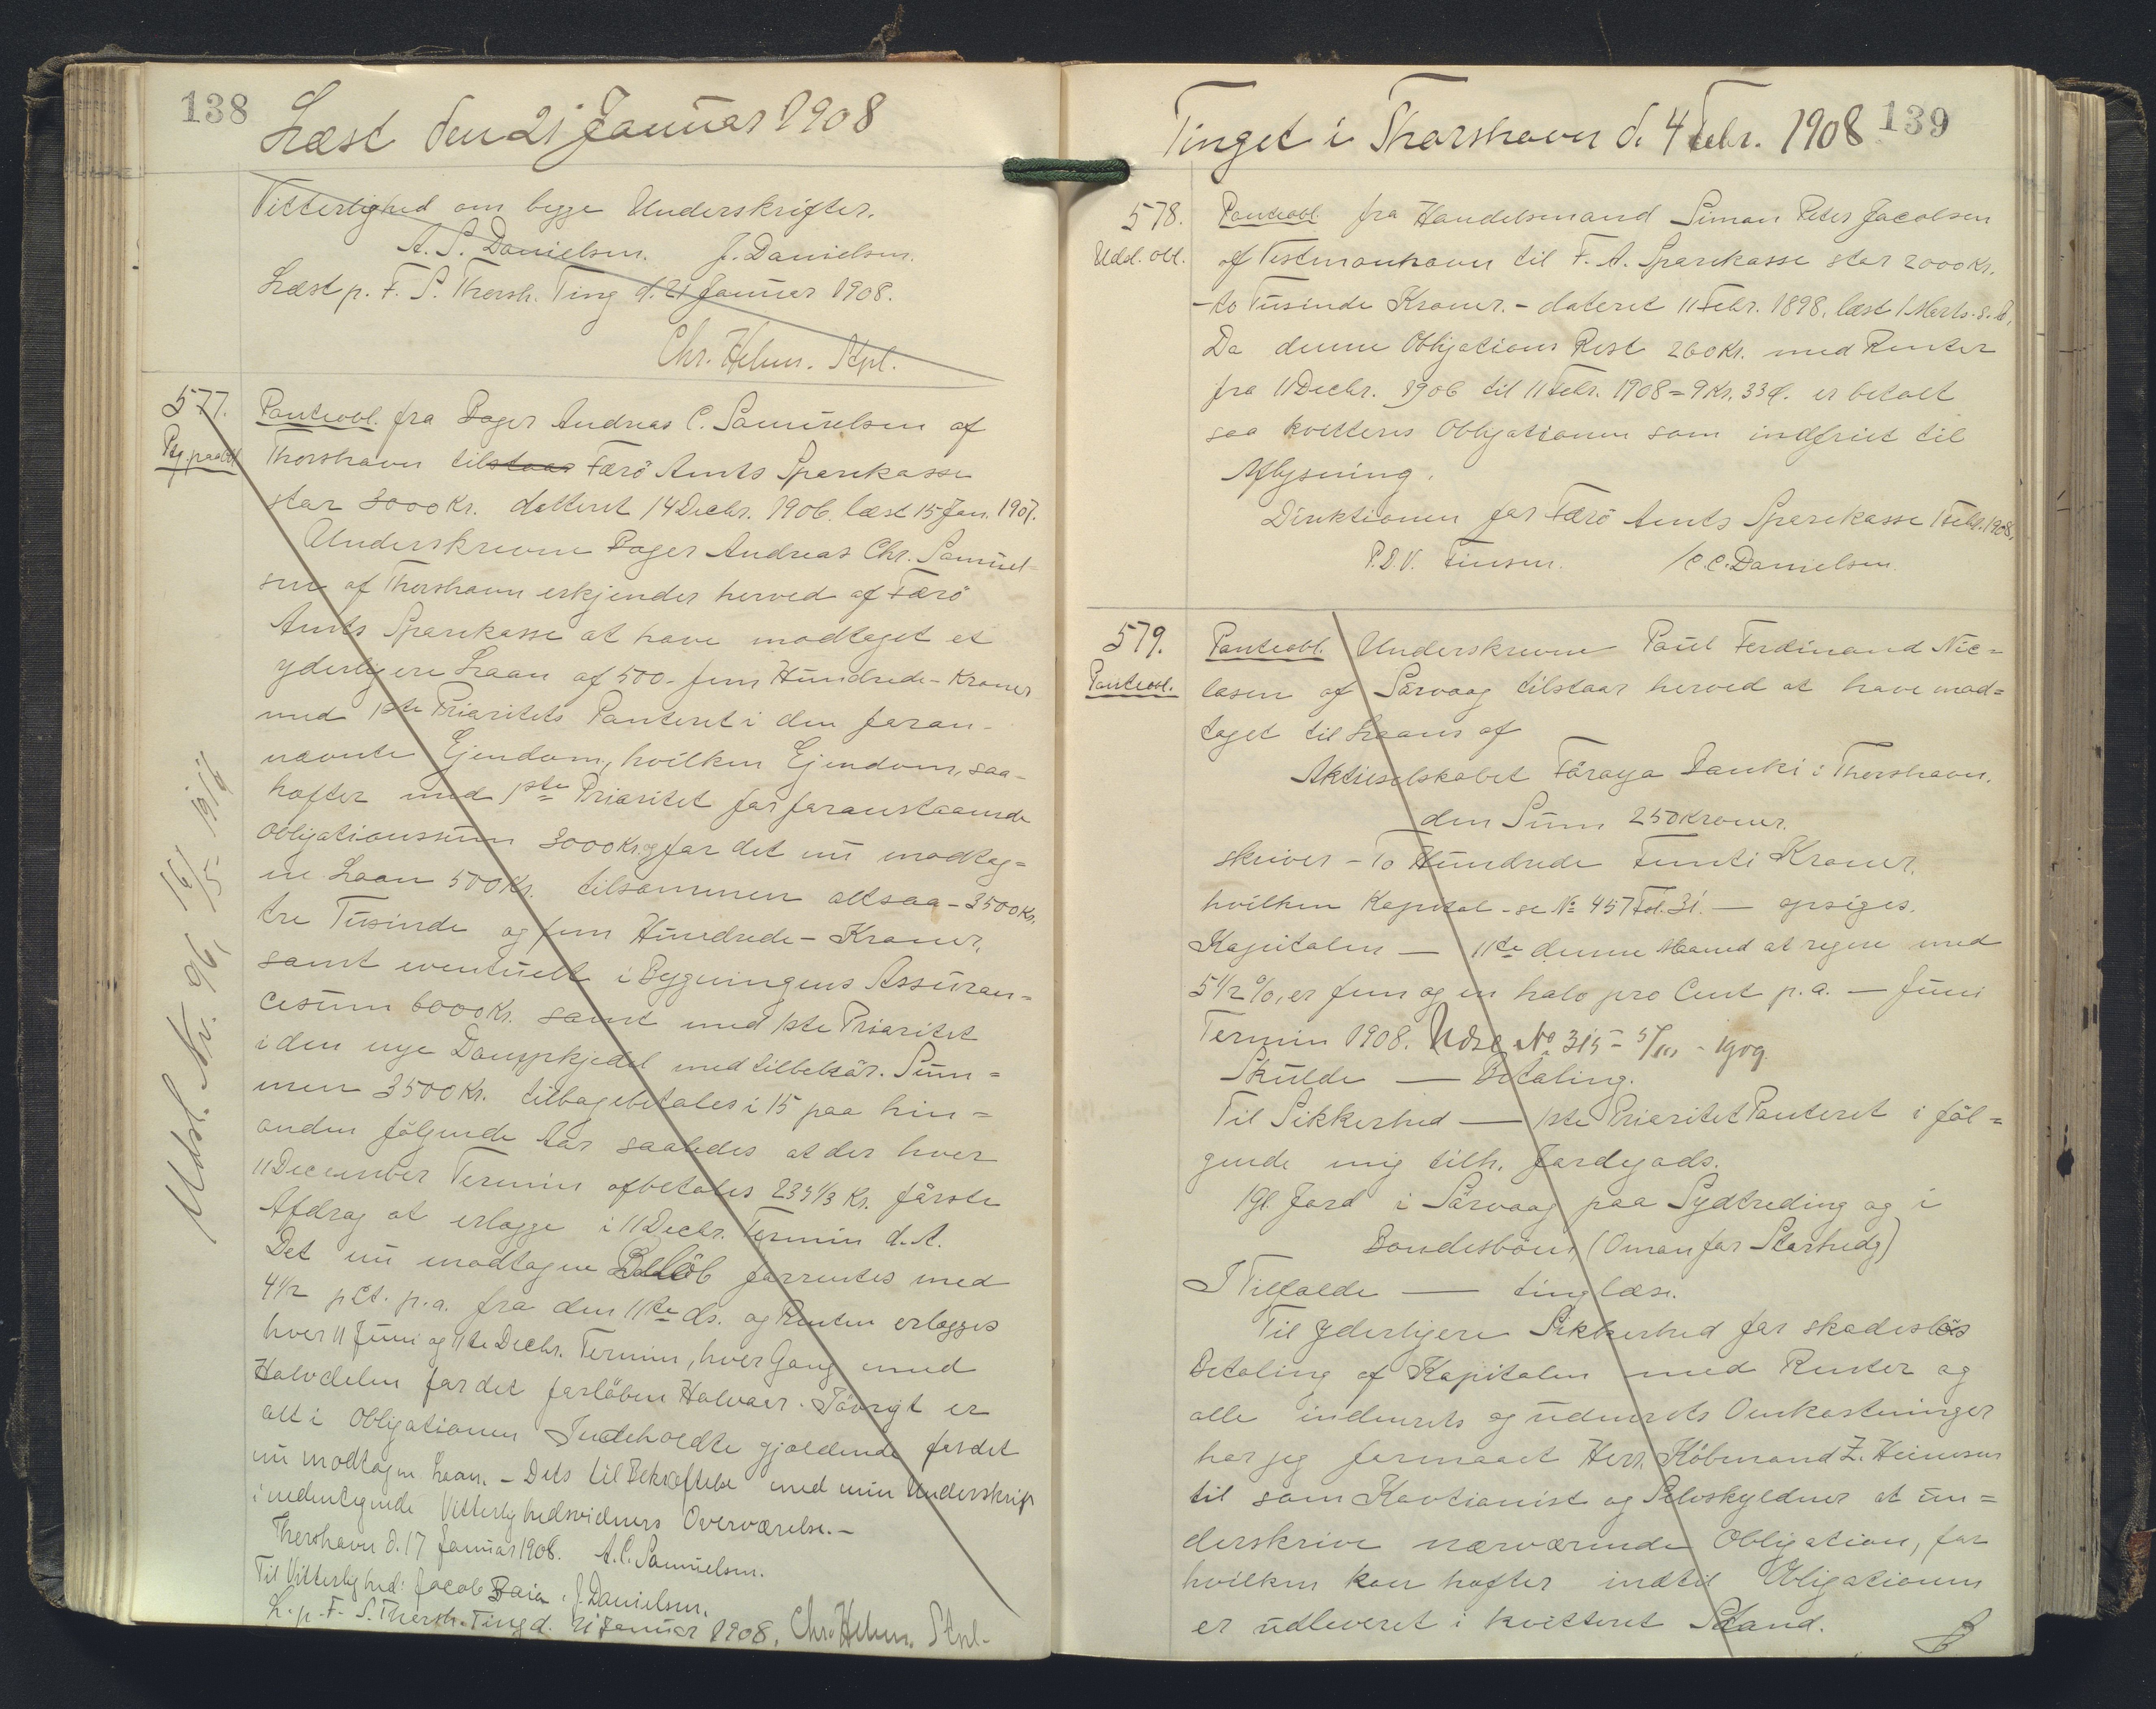 138
Læst den 21 Januar 1908
Vitterlighed om begge Underskrifter.
A. S. Danielsen. J. Danielsen.
Læst p. F. S. Thorsh. Ting d. 21 Januar 1908.
Chr. Helms. Stpl.
577.
Panteobl. fra Bager Andreas C. Samuelsen af
Thorshavn tilstaar Færö Amts Sparekasse
stor 3000 Kr. datteret 14 Decbr. 1906. læst 15 Jan. 1907.
Underskrevne Bager Andreas Chr. Samuel-
sen af Thorshavn erkjender herved af Færö
Amts Sparekasse at have modtaget et
yderligere Laan af 500 - fem Hundrede - Kroner
med 1ste Prioritets Panteret i den foran-
nævnte Ejendom, hvilken Ejendom, saa-
hæfter med 1ste Prioritet for foranstaaende
Obligationssum 3000 Kr. og for det nu modtag=
ne Laan 500 Kr. tilsammen altsaa - 3500 Kr.
tre Tusinde og fem Hundrede - Kroner,
samt eventuelt i Bygningens Assuran=
cesum 6000 Kr. samt med 1ste Prioritet
i den nye Dampkjedel med tilbehør. Sum=
men 3500 Kr. tilbagebetales i 15 paa hin=
anden følgende Aar saaledes at der hver
11 December Termin afbetales 233 1/3 Kr. første
Afdrag at erlægge i 11 Decbr. Termin d. A.
Det nu modtagne Beløb forrentes med
4 1/2 pCt. p.a. fra den 11te ds. og Renten erlægges
hver 11 Juni og 11te Decbr. Termin, hver Gang med
Halvdelen for det forløbne Halvaar. Iøvrigt er
alt i Obligationen Indeholdte gjældende for det
nu modtagne Laan. - Dets til Bekræftelse med min Underskrift
i nedentegnede Vitterlighedsvidners Overværelse. -
Thorshavn d. 17 Januar 1908. A. C. Samuelsen.
Til Vitterlighed: Jacob J. Danielsen.
L. p. F. S. Thorsh. Ting d. 21 Januar 1908. Chr. Helms. Stpl.
Udsl. Nr. 96, 16/5 1916
139
Tinget i Thorshavn d. 4 Febr. 1908
578.
Udsl. obl.
Pantobl. fra Handelsmand Simon Peter Jacobsen
af Vestmanhavn til F. A. Sparekasse stor 2000 Kr.
- to Tusinde Kroner. - dateret 11 Febr. 1898, læst 1 Marts s. A.
Da denne Obligations Rest 260 Kr. med Renter
fra 11 Decbr. 1906 til 11 Febr. 1908 = 9 Kr. 33 Ø. er betalt
saa kvitteres Obligationen som indfriet til
Aflysning.
Direktionen for Færö Amts Sparekasse 1 Febr. 1908,
P.D.V. Finsen. /C.C. Danielsen.
579.
Panteobl.
Panteobl. Underskrevne Poul Ferdinand Nic=
lasen af Sørvaag tilstaar herved at have mod=
taget til Laans af
Aktieselskabet Föroya Banki i Thorshavn.
den Sum 250 Kroner.
skriver - To Hundrede Femti Kroner,
hvilken Kapital - se № 457 Fol. 31. - opsiges.
Kapitalen - 11te denne Maaned at regne med
5 1/2 %, er fem og en halv pro Cent p. a. - Juni
Termin 1908. Udsl № 315 - 5/10 - 1909
Skulde - Betaling.
Til Sikkerhed - 1ste Prioritet Panteret i føl=
gende mig tilh. Jordegods.
1 Gl. Jord i Sørvaag paa Sydtreding og i
Bondesbøur, (Oman for Storhedg)
I Tilfælde - tinglæse.
Til yderligere Sikkerhed for skadesløs
Betaling af Kapitalen med Renter og
alle indenrets og udenrets Omkostninger
har jeg formaaet Herr. Købmand Z. Heinesen
til som Kautionist og Selvskyldner at un=
derskrive nærværende Obligation, for
hvilken han hæfter indtil Obligationen
er udleveret i kvitteret Stand.